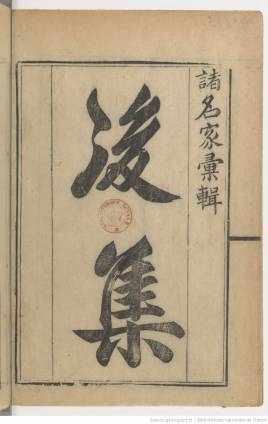 諸名家彙輯
後集
Source gallica.bnf.fr / Bibliothèque nationale de France